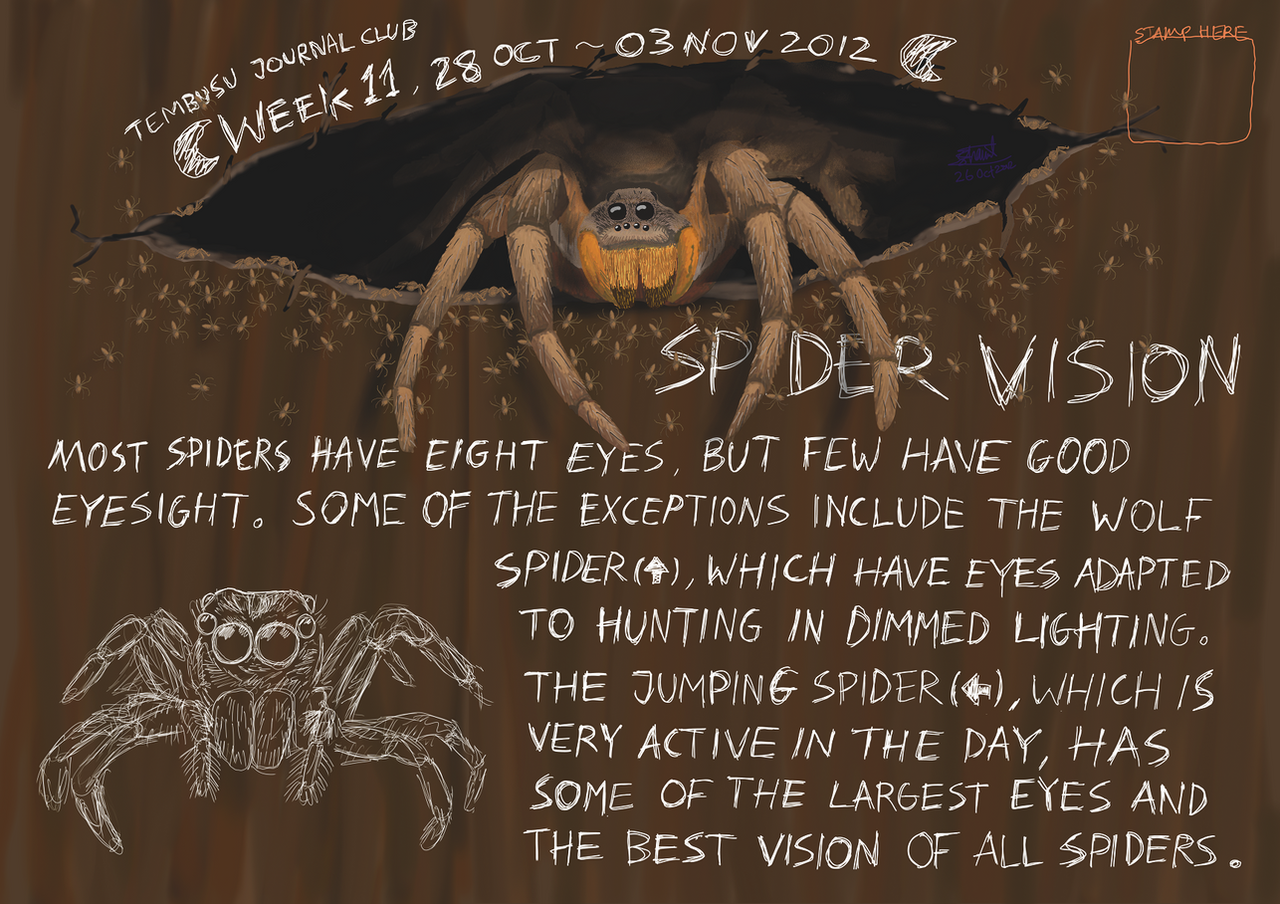 TEMBUSU JOURNAL CLUB
WEEK 11, 28 OCT ~ 03 NOV 2012
STAMP HERE
26 Oct
SPIDER VISION
MOST SPIDERS HAVE EIGHT EYES, BUT FEW HAVE GOOD
EYESIGHT. SOME OF THE EXCEPTIONS INCLUDE THE WOLF
SPIDER (⬆), WHICH HAVE EYES ADAPTED
TO HUNTING IN DIMMED LIGHTING.
THE JUMPING SPIDER (⬅), WHICH IS
VERY ACTIVE IN THE DAY, HAS
SOME OF THE LARGEST EYES AND
THE BEST VISION OF ALL SPIDERS.